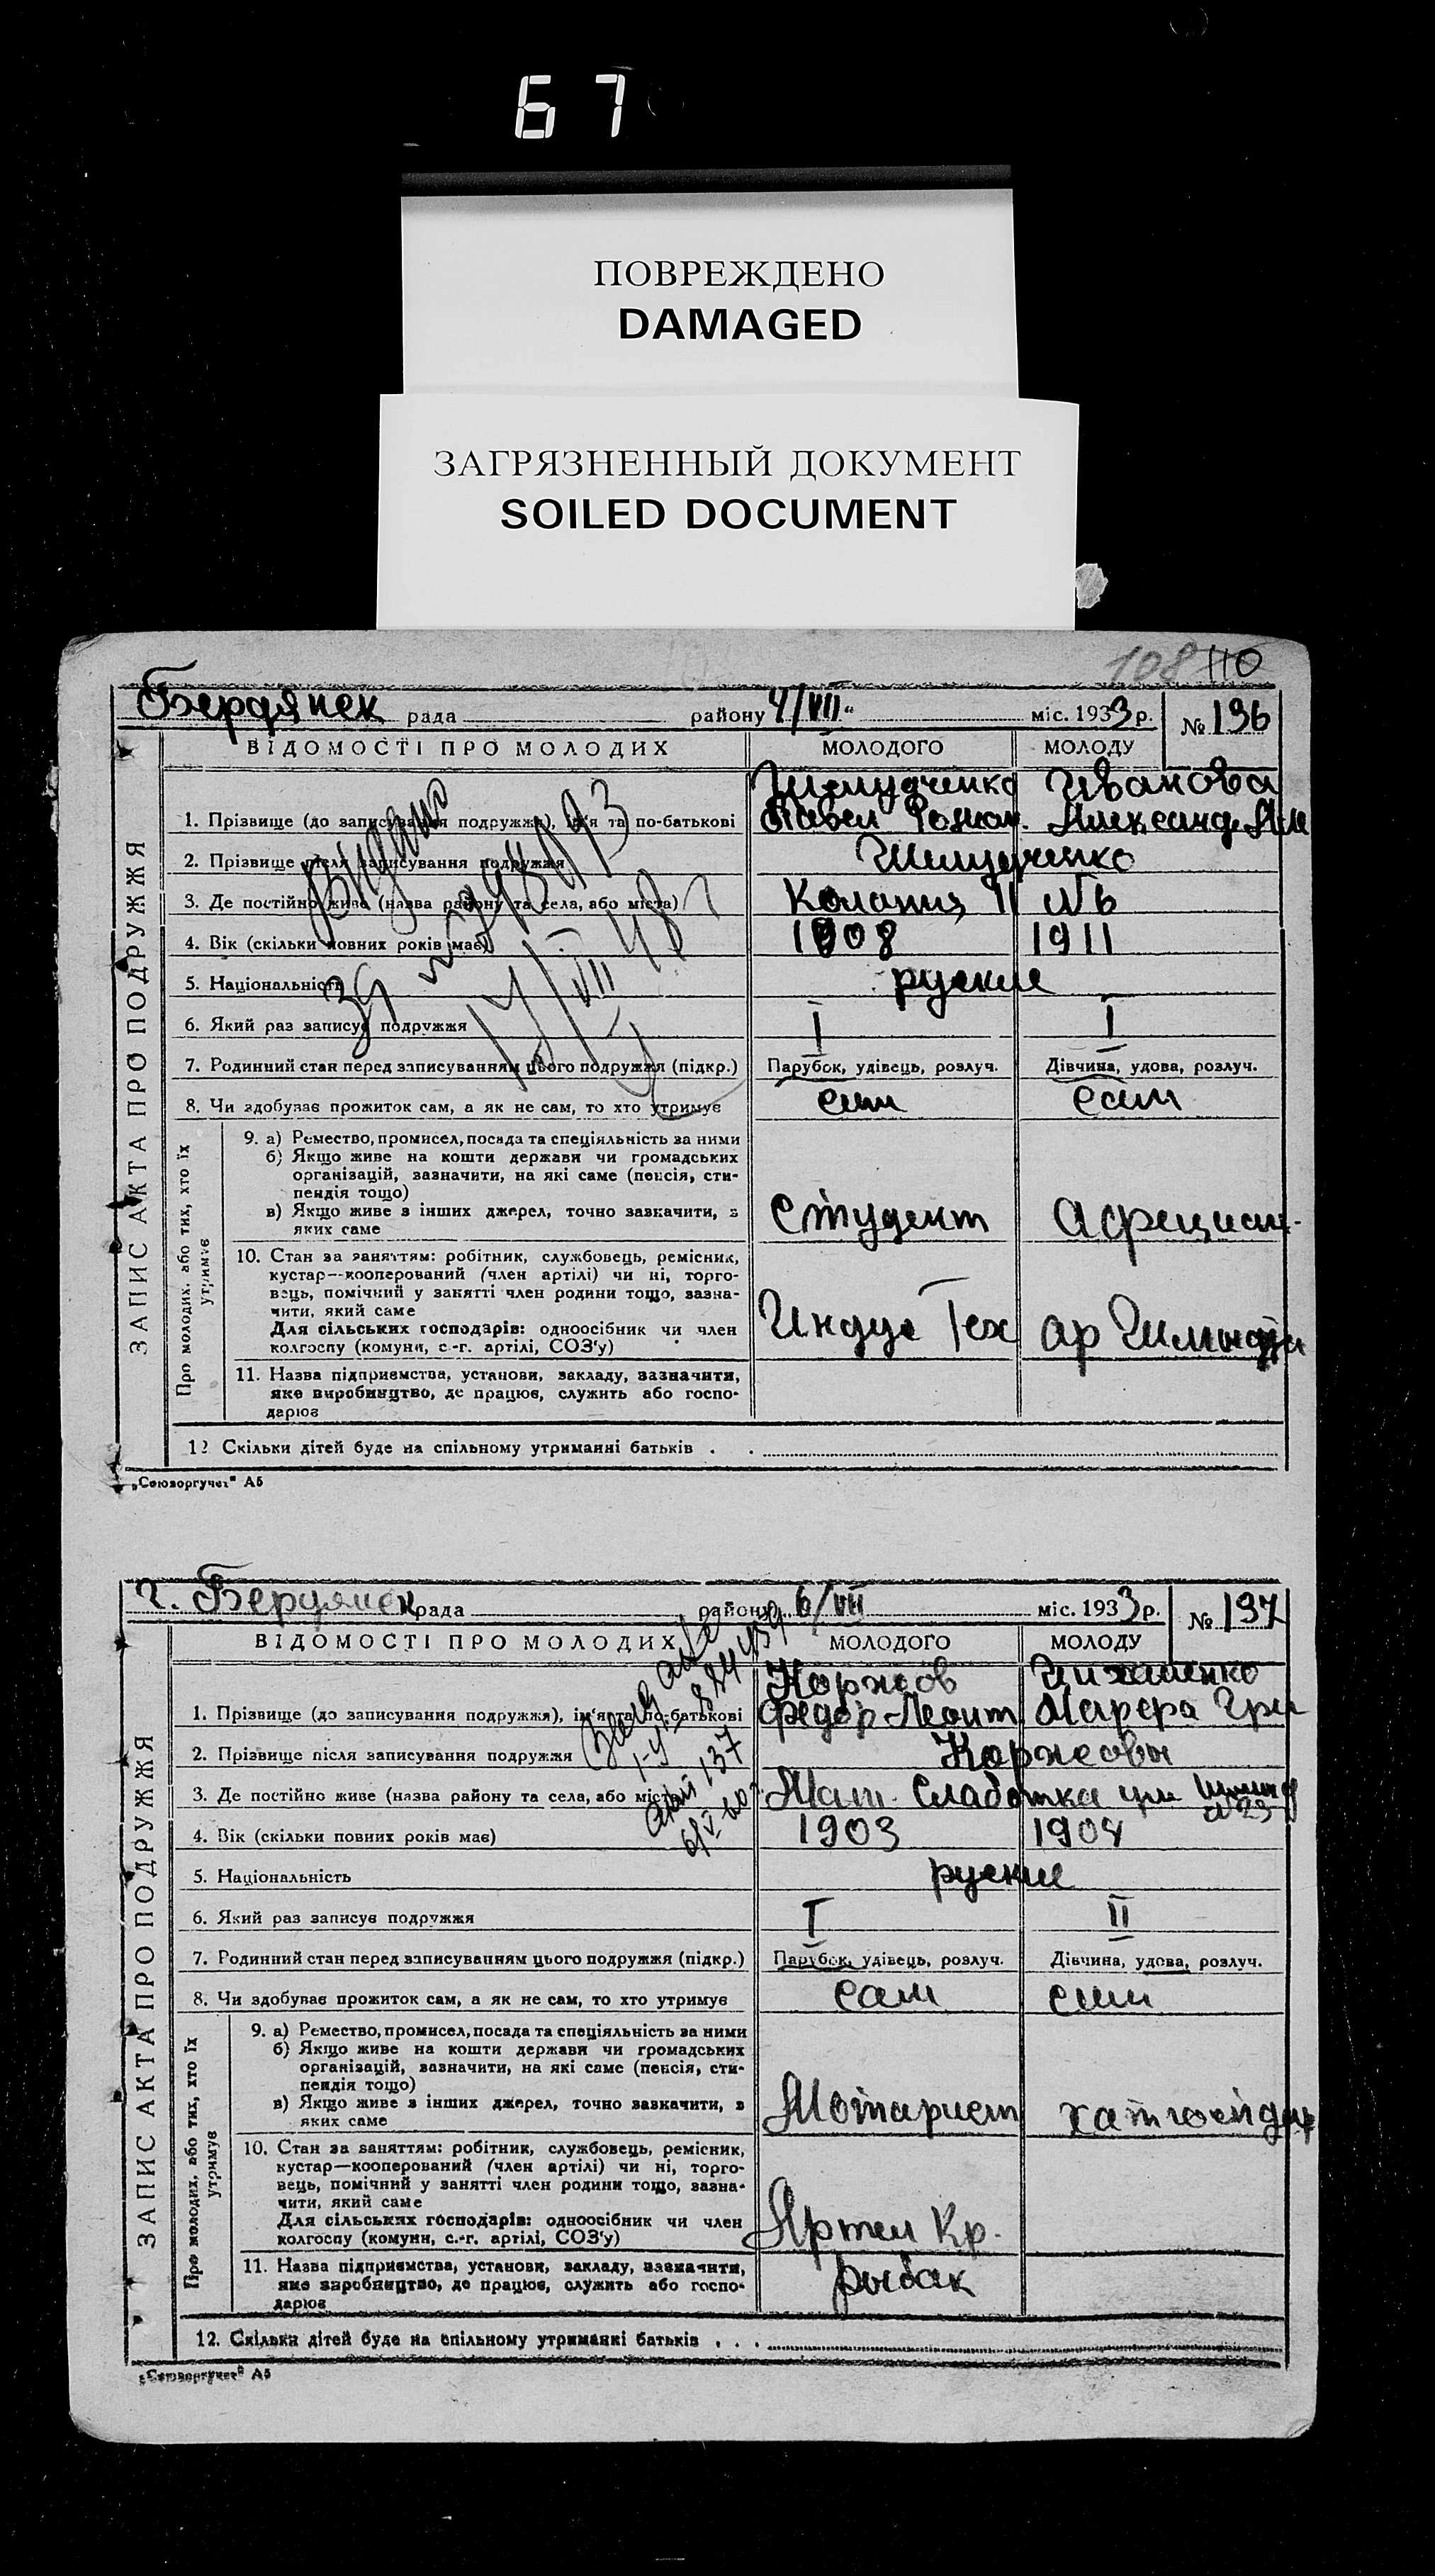 67
ПОВРЕЖДЕНО
DAMAGED
ЗАГРЯЗНЕННЫЙ ДОКУМЕНТ
SOILED DOCUMENT
108 110
Бердянск рада району 4/VII" міс. 1933 р. № 136
ЗАПИС АКТА ПРО ПОДРУЖЖЯ
ВІДОМОСТІ ПРО МОЛОДИХ МОЛОДОГО МОЛОДУ
Иванова
1. Прізвище (до записування подружжя), ім'я та по-батькові Павел Роман. Александ.
2. Прізвище після записування подружжя
3. Де постійно живе (назва району та села, або міста) Колония №6
4. Вік (скільки повних років має) 1908 1911
5. Національність руские
6. Який раз записує подружжя I I
7. Родинний стан перед записуванням цього подружжя (підкр.) Парубок, удівець, розлуч. Дівчина, удова, розлуч.
8. Чи здобуває прожиток сам, а як не сам, то хто утримує сам сам
Про молодих, або тих, хто їх утримує
9. а) Ремество, промисел, посада та спеціяльність за ними
б) Якщо живе на кошти держави чи громадських
організацій, зазначити, на які саме (пенсія, сти-
пендія тощо)
в) Якщо живе з інших джерел, точно зазначити, з
яких саме
студент официан.
10. Стан за заняттям: робітник, службовець, ремісник,
кустар—кооперований (член артілі) чи ні, торго-
вець, помічний у занятті член родини тощо, зазна-
чити, який саме
Для сільських господарів: одноосібник чи член
колгоспу (комуни, с.-г. артілі, СОЗ'у)
Индус Тех
11. Назва підприємства, установи, закладу, зазначити,
яке виробництво, де працює, служить або госпо-
дарює
12 Скільки дітей буде на спільному утриманні батьків . .
„Союзоргучет" А5
г. Бердянск рада району 6/VII міс. 1933 р. № 137
ЗАПИС АКТА ПРО ПОДРУЖЖЯ
ВІДОМОСТІ ПРО МОЛОДИХ МОЛОДОГО МОЛОДУ
Коржов
1. Прізвище (до записування подружжя), ім'я та по-батькові Федор Леонт.
2. Прізвище після записування подружжя Коржовы
3. Де постійно живе (назва району та села, або міста) Слободка
№23
4. Вік (скільки повних років має) 1903 1904
5. Національність руские
6. Який раз записує подружжя I II
7. Родинний стан перед записуванням цього подружжя (підкр.) Парубок, удівець, розлуч. Дівчина, удова, розлуч.
8. Чи здобуває прожиток сам, а як не сам, то хто утримує сам сам
Про молодих, або тих, хто їх утримує
9. а) Ремество, промисел, посада та спеціяльність за ними
б) Якщо живе на кошти держави чи громадських
організацій, зазначити, на які саме (пенсія, сти-
пендія тощо)
в) Якщо живе з інших джерел, точно зазначити, з
яких саме
Мотарист
10. Стан за заняттям: робітник, службовець, ремісник,
кустар—кооперований (член артілі) чи ні, торго-
вець, помічний у занятті член родини тощо, зазна-
чити, який саме
Для сільських господарів: одноосібник чи член
колгоспу (комуни, с.-г. артілі, СОЗ'у)
Артел Кр.
11. Назва підприємства, установи, закладу, зазначити,
яке виробництво, де працює, служить або госпо-
дарює
рыбак
12. Скільки дітей буде на спільному утриманні батьків . . .
„Союзоргучет" А5